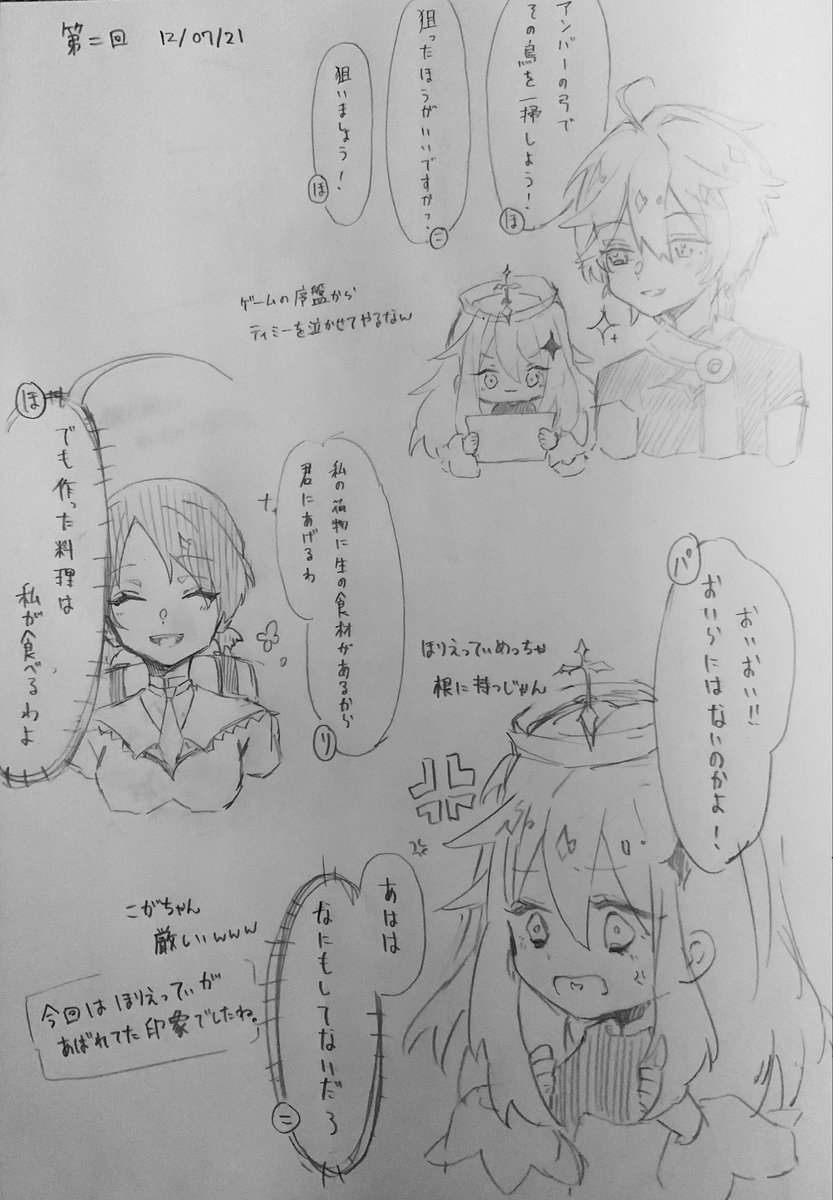 第二回 12/07/21
アンバーの弓で
その鳥を一掃しよう!
ほ
狙ったほうがいいですか?
こ
狙いましょう!
ほ
ゲームの序盤から
ティミーを泣かせてやるなん
私の荷物に生の食材があるから
君にあげるわ
リ
ほ
でも作った料理は
私が食べるわよ
パ
おいおい!!
おいらにはないのかよ!
ほりえってぃめっちゃ
根に持つじゃん
あはは
なにもしてないだろ
こ
こがちゃん
厳しいwww
今回はほりえってぃが
あばれてた印象でしたね。